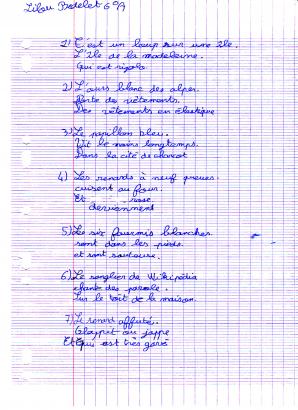 Lilou Bodelet 6°A
1) C'est un loup sur une île.
L'île de la madeleine.
Qui est rigolo
2) L'ours blanc des alpes.
Porte des vêtements.
Des vêtements en élastique
3) Le papillon bleu.
Vit le moins longtemps.
Dans la cité de
4) Les renards à neuf queues.
cuisent au four.
Et rose
deviennent
5) Les six fourmis blanches.
sont dans les pieds.
et sont
6) Le sanglier de Wikipédia
chante des parole.
Sur le toit de la maison.
7) Le renard affuté.
Glappet ou jappe
Et qui est très